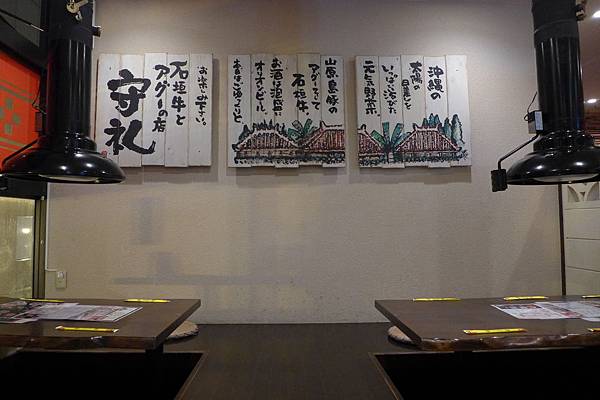 沖縄の
太陽の
日差しを
いっぱい浴びた
元気野菜
山原島豚の
アグーそして
石垣牛
お酒は泡盛に
オリオンビール
あとはごゆっくりと
お楽しみ下さい。
石垣牛と
アグーの店
守礼